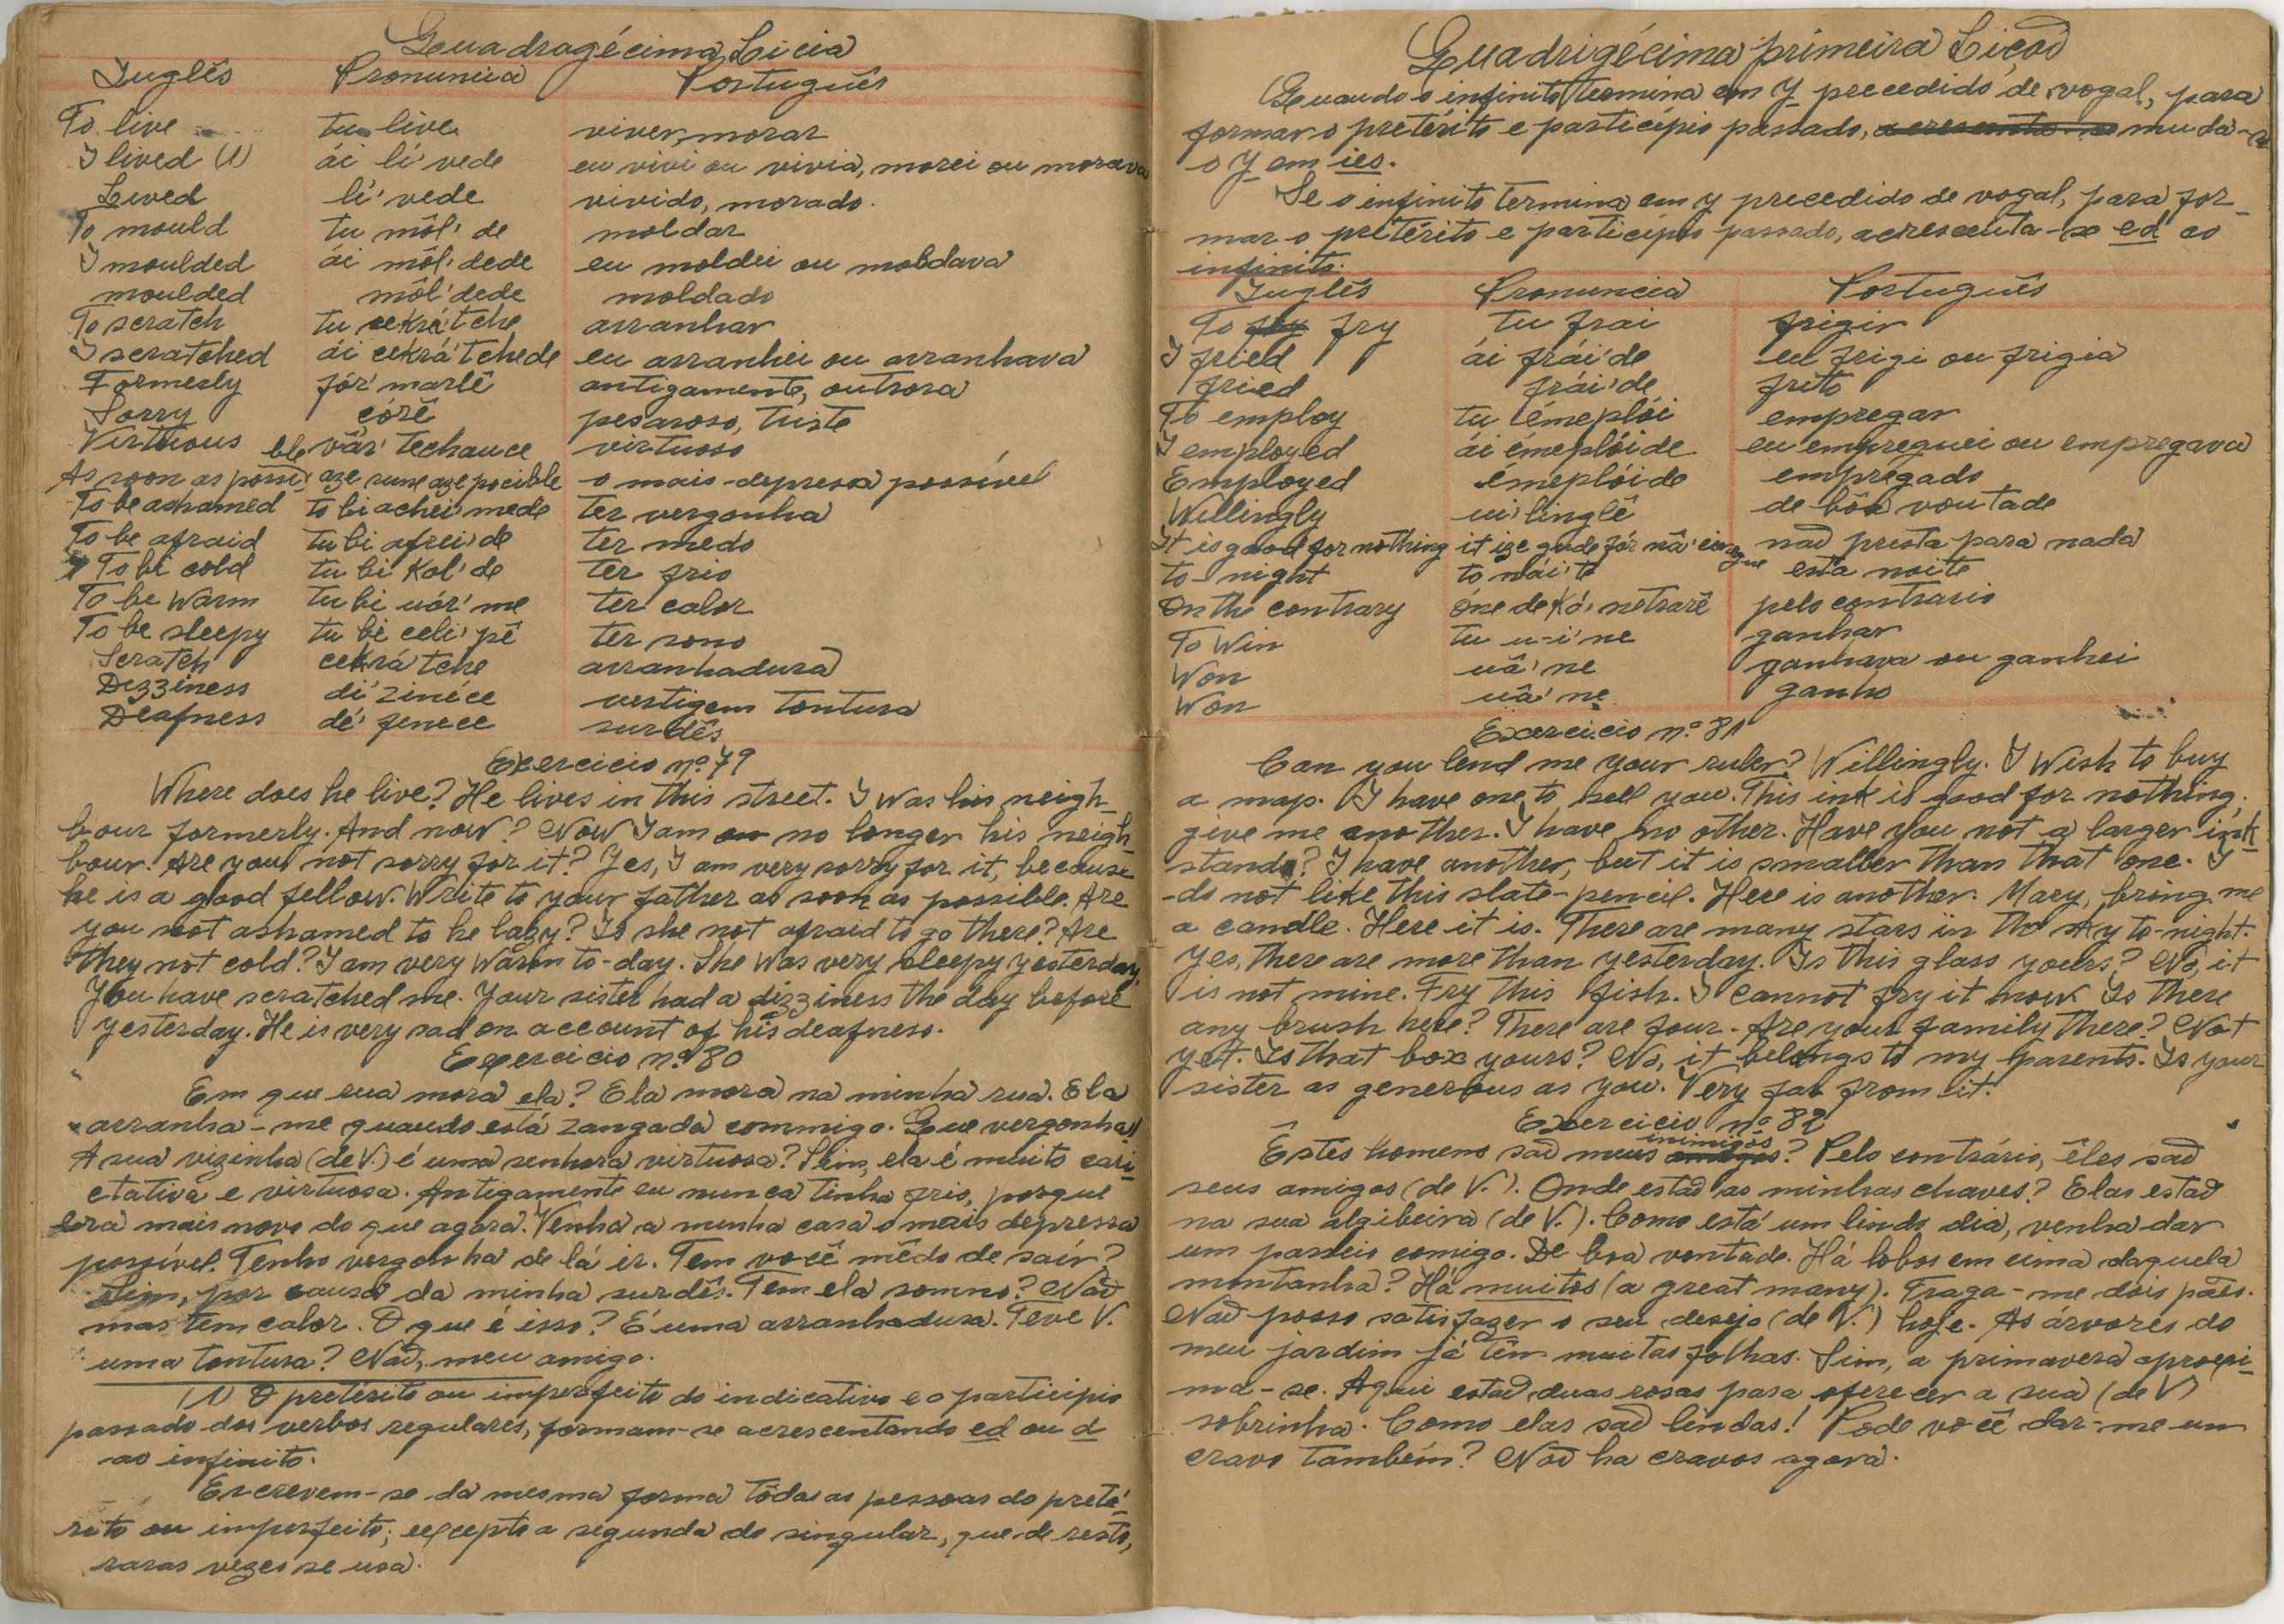 Quadragécima Licia
Inglês Pronuncia Português
To live tu live viver, morar
I lived (1) ái lí vede eu vivi ou vivia, morei ou morava
Lived lí' vede vivido, morado.
To mould tu môl' de moldar
I moulded ái môl' dede eu moldei ou moldava
moulded môl' dede moldado
To scratch tu cekrá'tche arranhar
I scratched ái cekrá'tchede eu arranhei ou arranhava
Formerly fór' marlê antigamente, outrora
Sorry córê pesaroso, triste
Virtuous vâr' techauce virtuoso
As soon as possible aze sune aze pocible o mais depressa possível
To be ashamed to bi achei'mede ter vergonha
To be afraid tu bi afrei'de ter medo
To bi cold tu bi kol' de ter frio
To be warm tu bi uór' me ter calor
To be sleepy tu bi celi' pê ter sono
Scratch cekrá tche arranhadura
Dizziness di' zinéce vertigem tontura
Deafness dé' fenece surdês
Exercicio nº 79
Where does he live? He lives in this street. I was his neigh-
bour formerly. And now? Now I am no longer his neigh-
bour. Are you not sorry for it? Yes, I am very sorry for it, because
he is a good fellow. Write to your father as soon as possible. Are
you not ashamed to be lazy? Is she not afraid to go there? Are
they not cold? I am very warm to-day. She was very sleepy yesterday.
You have scratched me. Your sister had a dizziness the day before
yesterday. He is very sad on account of his deafness.
Exercicio nº 80
Em que rua mora ela? Ela mora na minha rua. Ela
arranha-me quando está zangada commigo. Que vergonha!
A sua vizinha (de V.) é uma senhora virtuosa? Sim, ela é muito cari-
ctativa e virtuosa. Antigamente eu nunca tinha frio, porque
era mais novo do que agora. Venha a minha casa o mais depressa
possível. Tenho vergonha de lá ir. Tem você mêdo de saír?
Sim, por causa da minha surdês. Tem ela somno? Não
mas tem calor. O que é isso? É uma arranhadura. Teve V.
uma tontura? Não, meu amigo.
(1) O pretérito ou imperfeito do indicativo e o participio
passado dos verbos regulares, formam-se acrescentando ed ou d
ao infinito.
Escrevem-se da mesma forma tôdas as pessoas do preté-
rito ou imperfeito; excepto a segunda do singular, que de resto,
raras vezes se usa.
Quadrigécima primeira Liçaõ
Quando o infinito termina em y precedido de vogal, para
formar o pretérito e particípio passado, muda-se
o y em ies.
Se o infinito termina em y precedido de vogal, para for-
mar o pretérito e particípio passado, acrescenta-se ed ao
infinito.
Inglês Pronuncia Português
To fry tu frai frigir
I fried ái frái'de eu frigi ou frigia
fried frái'de frito
To employ tu émeplói empregar
I employed ái émeplóide eu empreguei ou empregava
Employed émeplóide empregado
Willingly ui'linglê de bôa vontade
It is good for nothing it ize gude fór nâ' naõ presta para nada
to-night to nái'te esta noite
On the contrary óne de kó'netrarê pelo contrario
To Win tu u-i'ne ganhar
Won uâ'ne ganhava ou ganhei
Won uâ'ne ganho
Exercicio nº 81
Can you lend me your ruler? Willingly. I wish to buy
a map. I have one to sell you. This ink is good for nothing.
give me another. I have no other. Have you not a larger ink-
stand? I have another, but it is smaller than that one. I
do not like this slate-pencil. Here is another. Mary, bring me
a candle. Here it is. There are many stars in the sky to-night.
Yes, there are more than yesterday. Is this glass yours? No, it
is not mine. Fry this fish. I cannot fry it now. Is there
any brush here? There are four. Are your family there? Not
yet. Is that box yours? No, it belongs to my parents. Is your
sister as generous as you. Very far from it!
Exercicio nº 82
Êstes homens saõ meus inimigos? Pelo contrário, êles saõ
seus amigos (de V.). Onde estaõ as minhas chaves? Elas estaõ
na sua algibeira (de V.). Como está um lindo dia, venha dar
um passeio comigo. De boa vontade. Há lobos em cima daquela
montanha? Há muitos (a great many). Traga-me dois pães.
Naõ posso satisfazer o seu desejo (de V.) hoje. As árvores do
meu jardim já têm muitas folhas. Sim, a primavera aproxi-
ma-se. Aqui estaõ duas rosas para oferecer a sua (de V)
sobrinha. Como elas saõ lindas! Pode você dar-me um
cravo também? Naõ ha cravos agora.